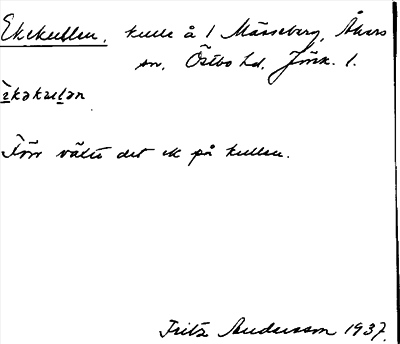 Ekekullen. kulle å 1 Måsseberg, Åkers
sn. Östbo hd. Jönk. l.
ìkəkulən
Förr växte det ek på kullen.
Fritz Andersson 1937.